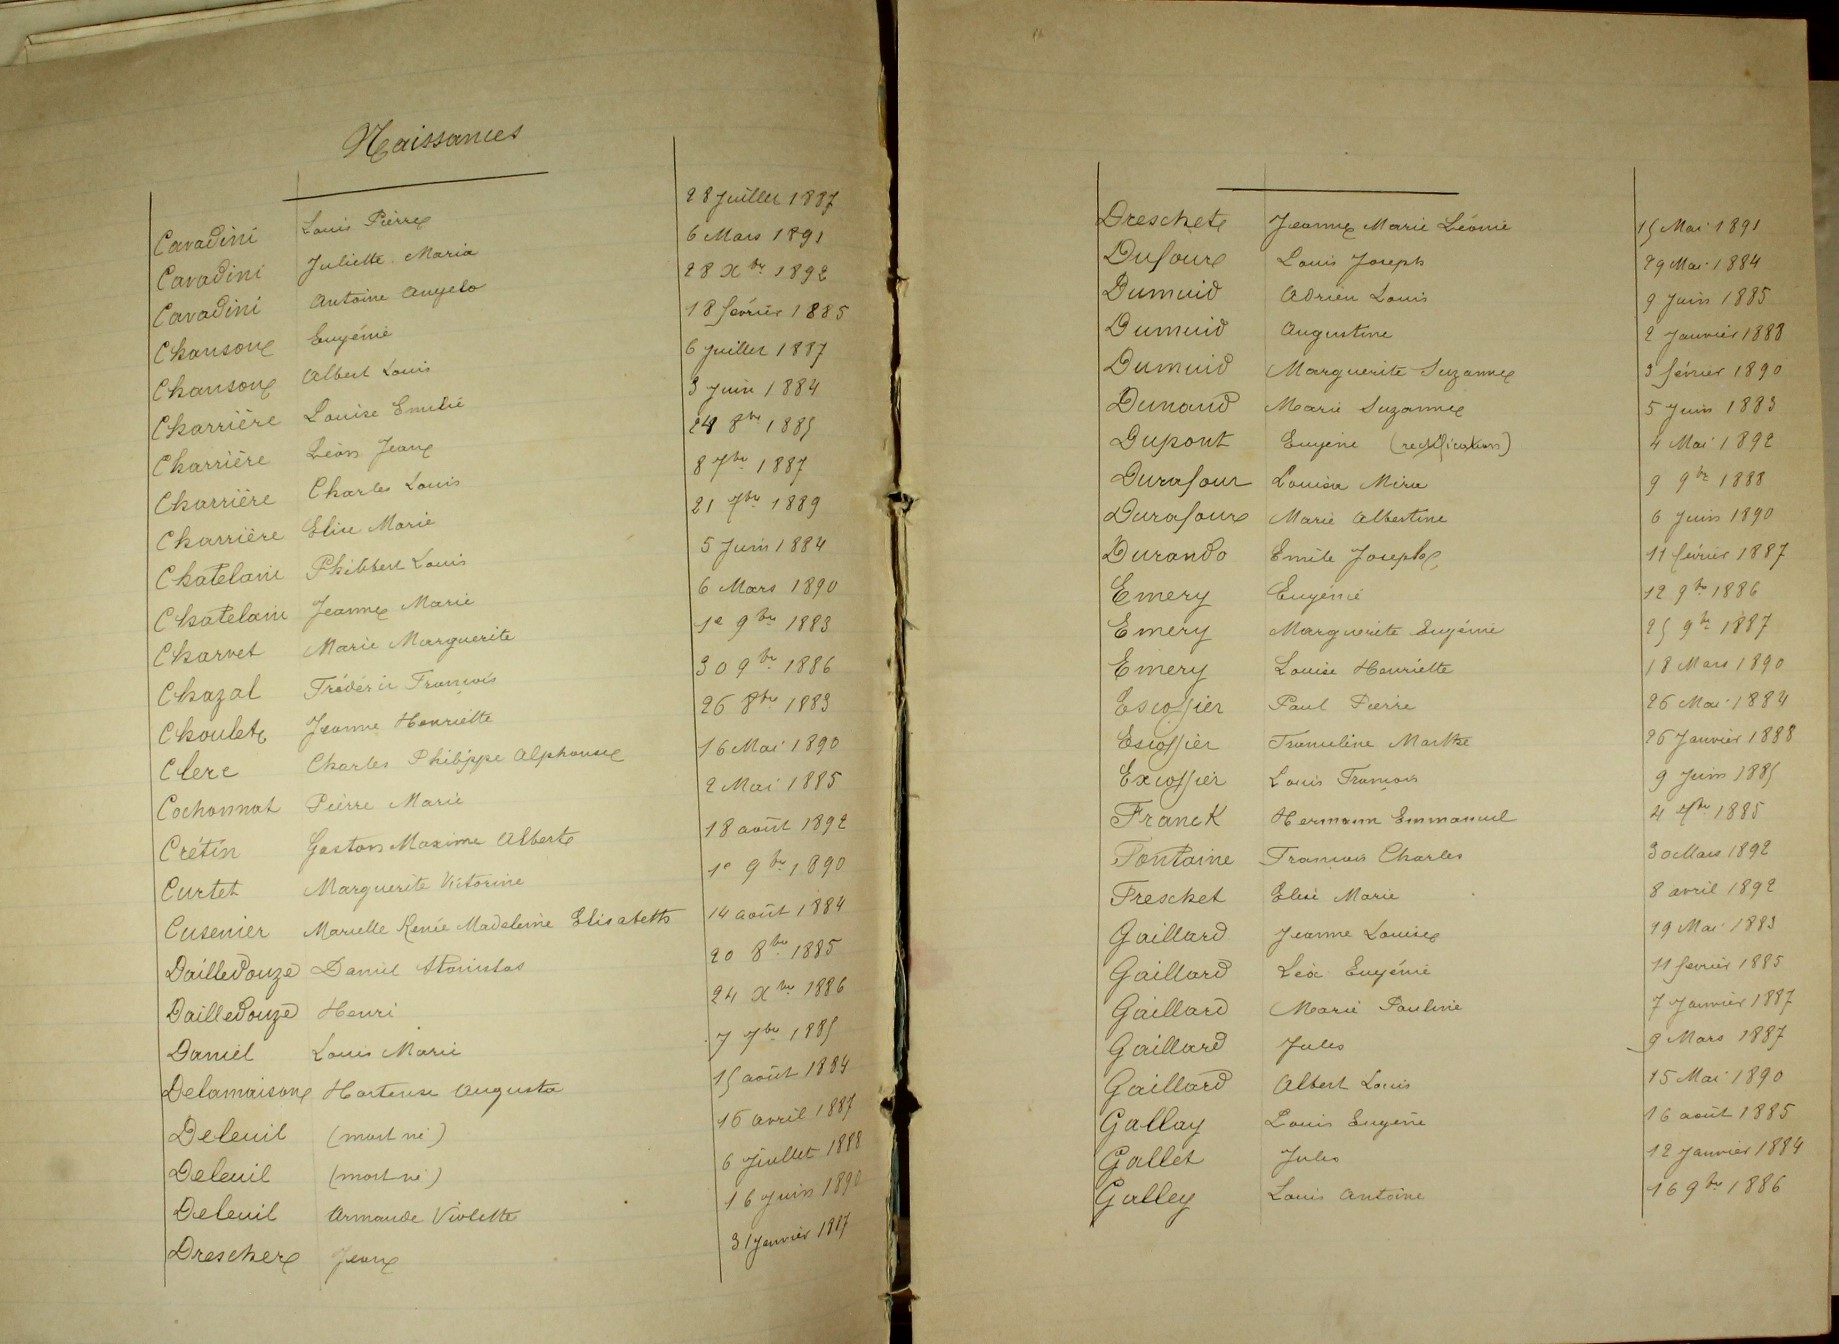 Naissances
Cavadini Louis Pierre 28 Juillet 1887
Cavadini Juliette Maria 6 Mars 1891
Cavadini Antoine Angelo 28 Xbre 1892
Chanson Eugénie 18 février 1885
Chanson Albert Louis 6 Juillet 1887
Charrière Louise Emilie 3 Juin 1884
Charrière Léon Jean 24 8bre 1885
Charrière Charles Louis 8 7bre 1887
Charrière Elise Marie 21 7bre 1889
Chatelain Philibert Louis 5 Juin 1884
Chatelain Jeanne Marie 6 Mars 1890
Charvet Marie Marguerite 1e 9bre 1883
Chazal Frédéric François 30 9bre 1886
Choulet Jeanne Henriette 26 8bre 1883
Clerc Charles Philippe Alphonse 16 Mai 1890
Cochonnat Pierre Marie 2 Mai 1885
Crétin Gaston Maxime Albert 18 août 1892
Curtet Marguerite Victorine 1e 9bre 1890
Cusenier Marielle Renée Madeleine Elisabeth 14 août 1884
Dailledouze Daniel Stanislas 20 8bre 1885
Dailledouze Henri 24 Xbre 1886
Daniel Louis Marie 7 7bre 1885
Delamaison Hortense Augusta 15 août 1884
Deleuil (mort né) 16 avril 1887
Deleuil (mort né) 6 Juillet 1888
Deleuil Armande Violette 16 Juin 1890
Drescher Jean 31 Janvier 1887
Dreschet Jeanne Marie Léonie 15 Mai 1891
Dufour Louis Joseph 29 Mai 1884
Dumuid Adrien Louis 9 Juin 1885
Dumuid Augustine 2 Janvier 1888
Dumuid Marguerite Suzanne 3 février 1890
Dunand Marie Suzanne 5 Juin 1883
Dupont Eugène (rectification) 4 Mai 1892
Durafour Louisa Mira 9 9bre 1888
Durafour Marie Albertine 6 Juin 1890
Durando Emile Joseph 11 février 1887
Emery Eugénie 12 9bre 1886
Emery Marguerite Eugénie 25 9bre 1887
Emery Louise Henriette 18 Mars 1890
Escoffier Paul Pierre 26 Mai 1884
Escoffier Franceline Marthe 26 Janvier 1888
Excoffier Louis François 9 Juin 1885
Franck Hermann Emmanuel 4 7bre 1885
Fontaine François Charles 30 Mars 1892
Freschet Elise Marie 8 avril 1892
Gaillard Jeanne Louise 19 Mai 1883
Gaillard Léa Eugénie 11 février 1885
Gaillard Marie Pauline 7 Janvier 1887
Gaillard Jules 9 Mars 1887
Gaillard Albert Louis 15 Mai 1890
Gallay Louis Eugène 16 août 1885
Gallet Jules 12 Janvier 1884
Galley Louis Antoine 16 9bre 1886